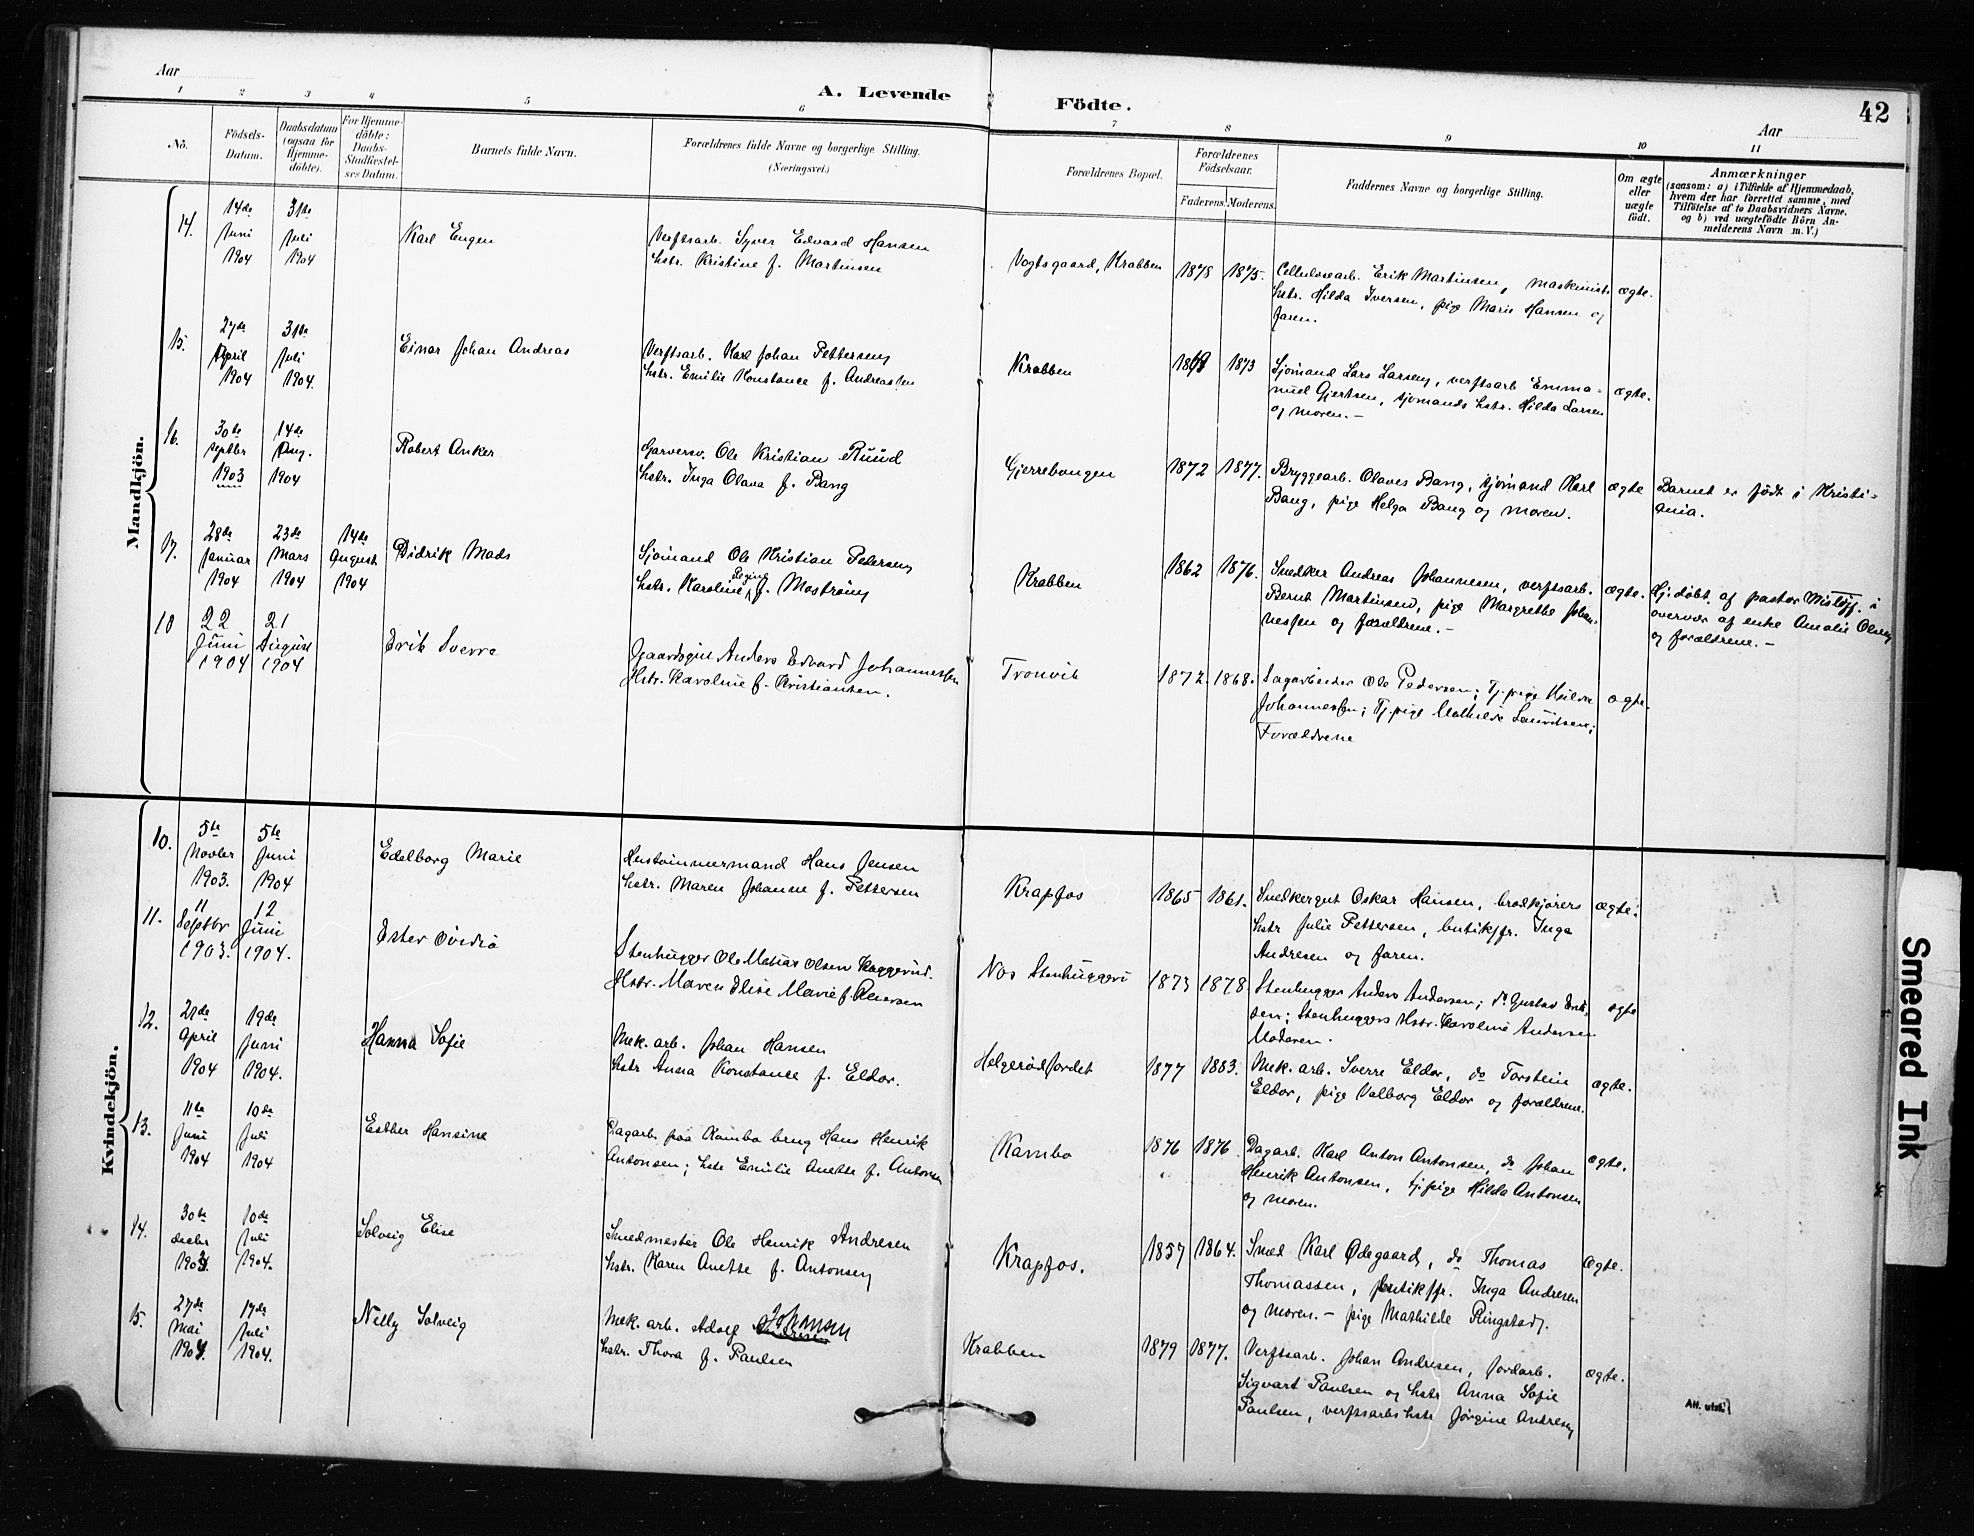 Aar
A. Levende Födte.
42
Aar
1 2 3 4 5 6 7 8 9 10 11
No.
Födsels-Datum.
Daabsdatum (ogsaa for Hjemme-döbte).
For Hjemme-döbte: Daabs-Stadfæstel-ses Datum.
Barnets fulde Navn.
Forældrenes fulde Navne og borgerlige Stilling. (Næringsvei.)
Forældrenes Bopæl.
Forældrenes Födselsaar.
Faderens. Moderens.
Faddernes Navne og borgerlige Stilling.
Om ægte eller uægte födt.
Anmærkninger
(saasom: a) i Tilfælde af Hjemmedaab, hvem der har forrettet samme, med Tilföielse af to Daabsvidners Navne, og b) ved uægtefödte Börn An-melderens Navn m.V.)
Mandkjön.
14. 14de Juni 1904 31te Juli 1904 Karl Eugen
Verftsarb. Syver Edvard Hansen
hstr. Kristine f. Martinsen
Vogtsgaard, Krabben 1878 1875.
Cellulosearb. Erik Martinsen, maskinists
hstr. Hilda Iversen, pige Marie Hansen og
faren.
ægte.
15. 27de April 1904 31te Juli 1904. Einar Johan Andreas
Verftsarb. Karl Johan Pettersen
hstr. Emilie Konstance f. Andreassen
Krabben 1873
Sjömand Lars Larsen, verftsarb Emma-
nuel Gjertsen, sjömands hstr. Hilda Larsen
og moren. -
ægte.
16. 30te septbr 1903 14de Aug. 1904 Robert Anker
Garversv. Ole Kristian Ruud
hstr. Inga Olava f. Bang
Gjerrebongen 1872 1877.
Bryggearb. Olaves Bang, sjömand Karl
Bang, pige Helga Bang og moren.
ægte
Barnet er födt i Kristi-
ania.
17. 28de Januar 1904 23de Mars 1904 14de August 1904 Didrik Mads
Sjömand Ole Kristian Petersen
hstr. Karoline Regine f. Moström
Krabben 1862 1876.
Snedker Andreas Johannesen, verftsarb.
Bernt Martinsen, pige Margrethe Johan-
nessen og forældrene. -
ægte.
Hj. döbt. af pastor i
overvær af enke Amalie Olsen
og forældrene. -
18 22 Juni 1904 21 August 1904 Erik Sverre
Gaardsgut Anders Edvard Johannessen
Hstr. Karoline f. Kristiansen.
Tronvik 1872. 1868.
Sagarbeider Ole Pedersen; Tj.pige Hilda
Johannessen; Tj.pige Mathilde Lauritsen;
Forældrene
ægte.
Kvindekjön.
10. 5te Novbr 1903. 5te Juni 1904 Edelborg Marie
Hustömmermand Hans Jensen
hstr. Maren Johanne f. Pettersen
Krapfos 1865 1861.
Snedkergut Oskar Hansen, brödkjörers
hstr Julie Pettersen, butikjfr. Inga
Andresen og faren.
ægte.
11. 11 Septbr 1903. 12 Juni 1904. Ester
Stenhugger Ole Matias Olsen
Hstr. Maren Elise Marie f.
Nos Stenhuggeri 1873 1878
Stenhugger Anders Andersen; do Gustav Erik-
sen; Stenhuggers Hstr. Karoline Andersen
Moderen.
ægte
12. April 1904 19de Juni 1904. Hanna Sofie
Mek. arb. Johan Hansen
hstr Anna Konstance f. Eldor.
Helgerödfordet 1877 1883.
Mek. arb. Sverre Eldor, do Torstein
Eldor, pige Valborg Eldor og forældrene.
ægte.
13. 11te Juni 1904 10de Juli 1904 Esther Hansine
Dagarb. paa Kambo brug Hans Henrik
Antonsen; hstr Emilie Anette f. Antonsen
Kambo 1876 1876.
Dagarb. Karl Anton Antonsen, do Johan
Henrik Antonsen, tj.pige Hilda Antonsen
og moren.
ægte.
14. 30te decbr 1903. 10de Juli 1904. Solveig Elise
Smedmester Ole Henrik Andresen
hstr. Karen Anette f. Antonsen
Krapfos. 1857 1864.
Smed Karl Ødegaard, do Thomas
Thomassen, butikjfr. Inga Andresen
og moren. - pige Mathilde Ringstad.
ægte.
15. 27de Mai 1904. 17de Juli 1904. Nelly Solveig
Mek. arb. Adolf Johansen
hstr. Thora f. Paulsen
Krabben 1879 1877.
Verftsarb. Johan Andresen, jordarb.
Sigvart Paulsen og hstr Anna Sofie
Paulsen, verftsarbs hstr Jörgine Andresen
ægte.
Att. utst.
Smeared Ink